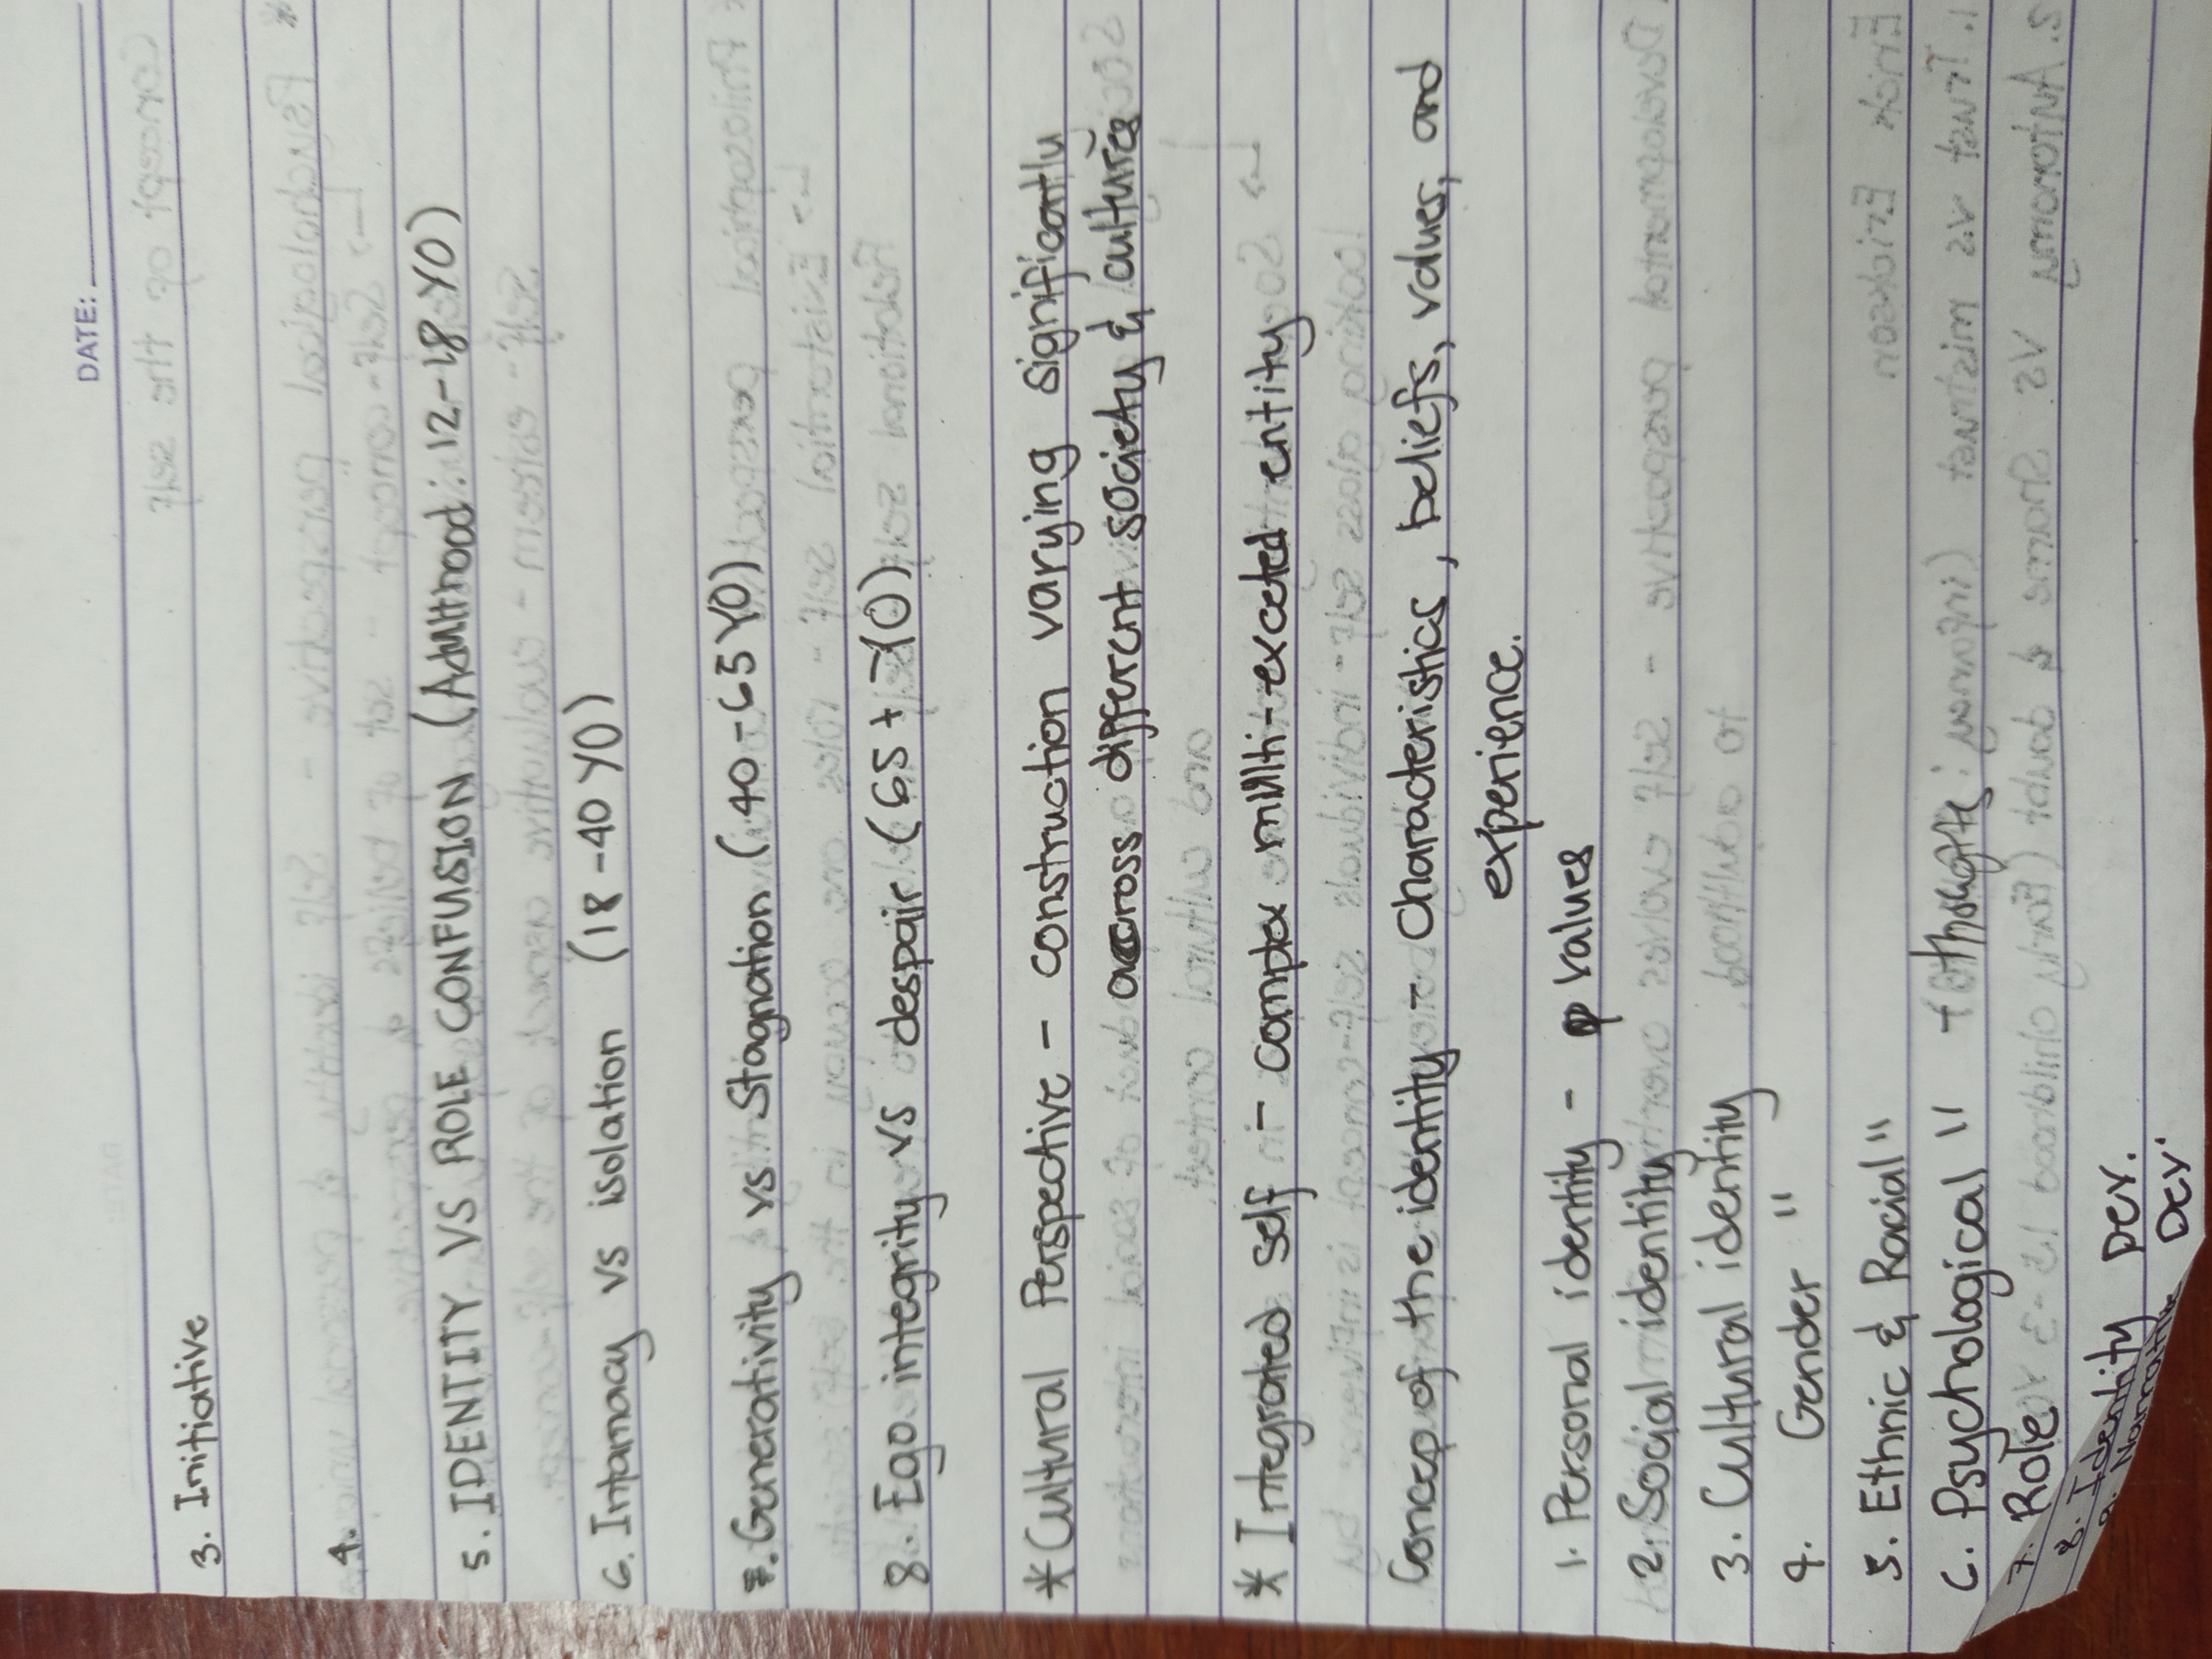 DATE:
3. Initiative
4.
5. IDENTITY VS ROLE CONFUSION (Adulthood: 12-18 YO)
6. Intamacy vs isolation (18-40 YO)
7. Generativity vs Stagnation (40-65 YO)
8. Ego integrity vs despair (65+ YO)
* Cultural Perspective - construction varying significantly
across different society & cultures
* Integrated self - complex multi-exceted entity
Concep of the identity - Characteristics, beliefs, values, and
experience.
1. Personal identity - values
2. Social identity
3. Cultural identity
4. Gender "
5. Ethnic & Racial "
6. Psychological " - thoughts
7. Role
8. Identity Dev.
9. Narrative Dev.